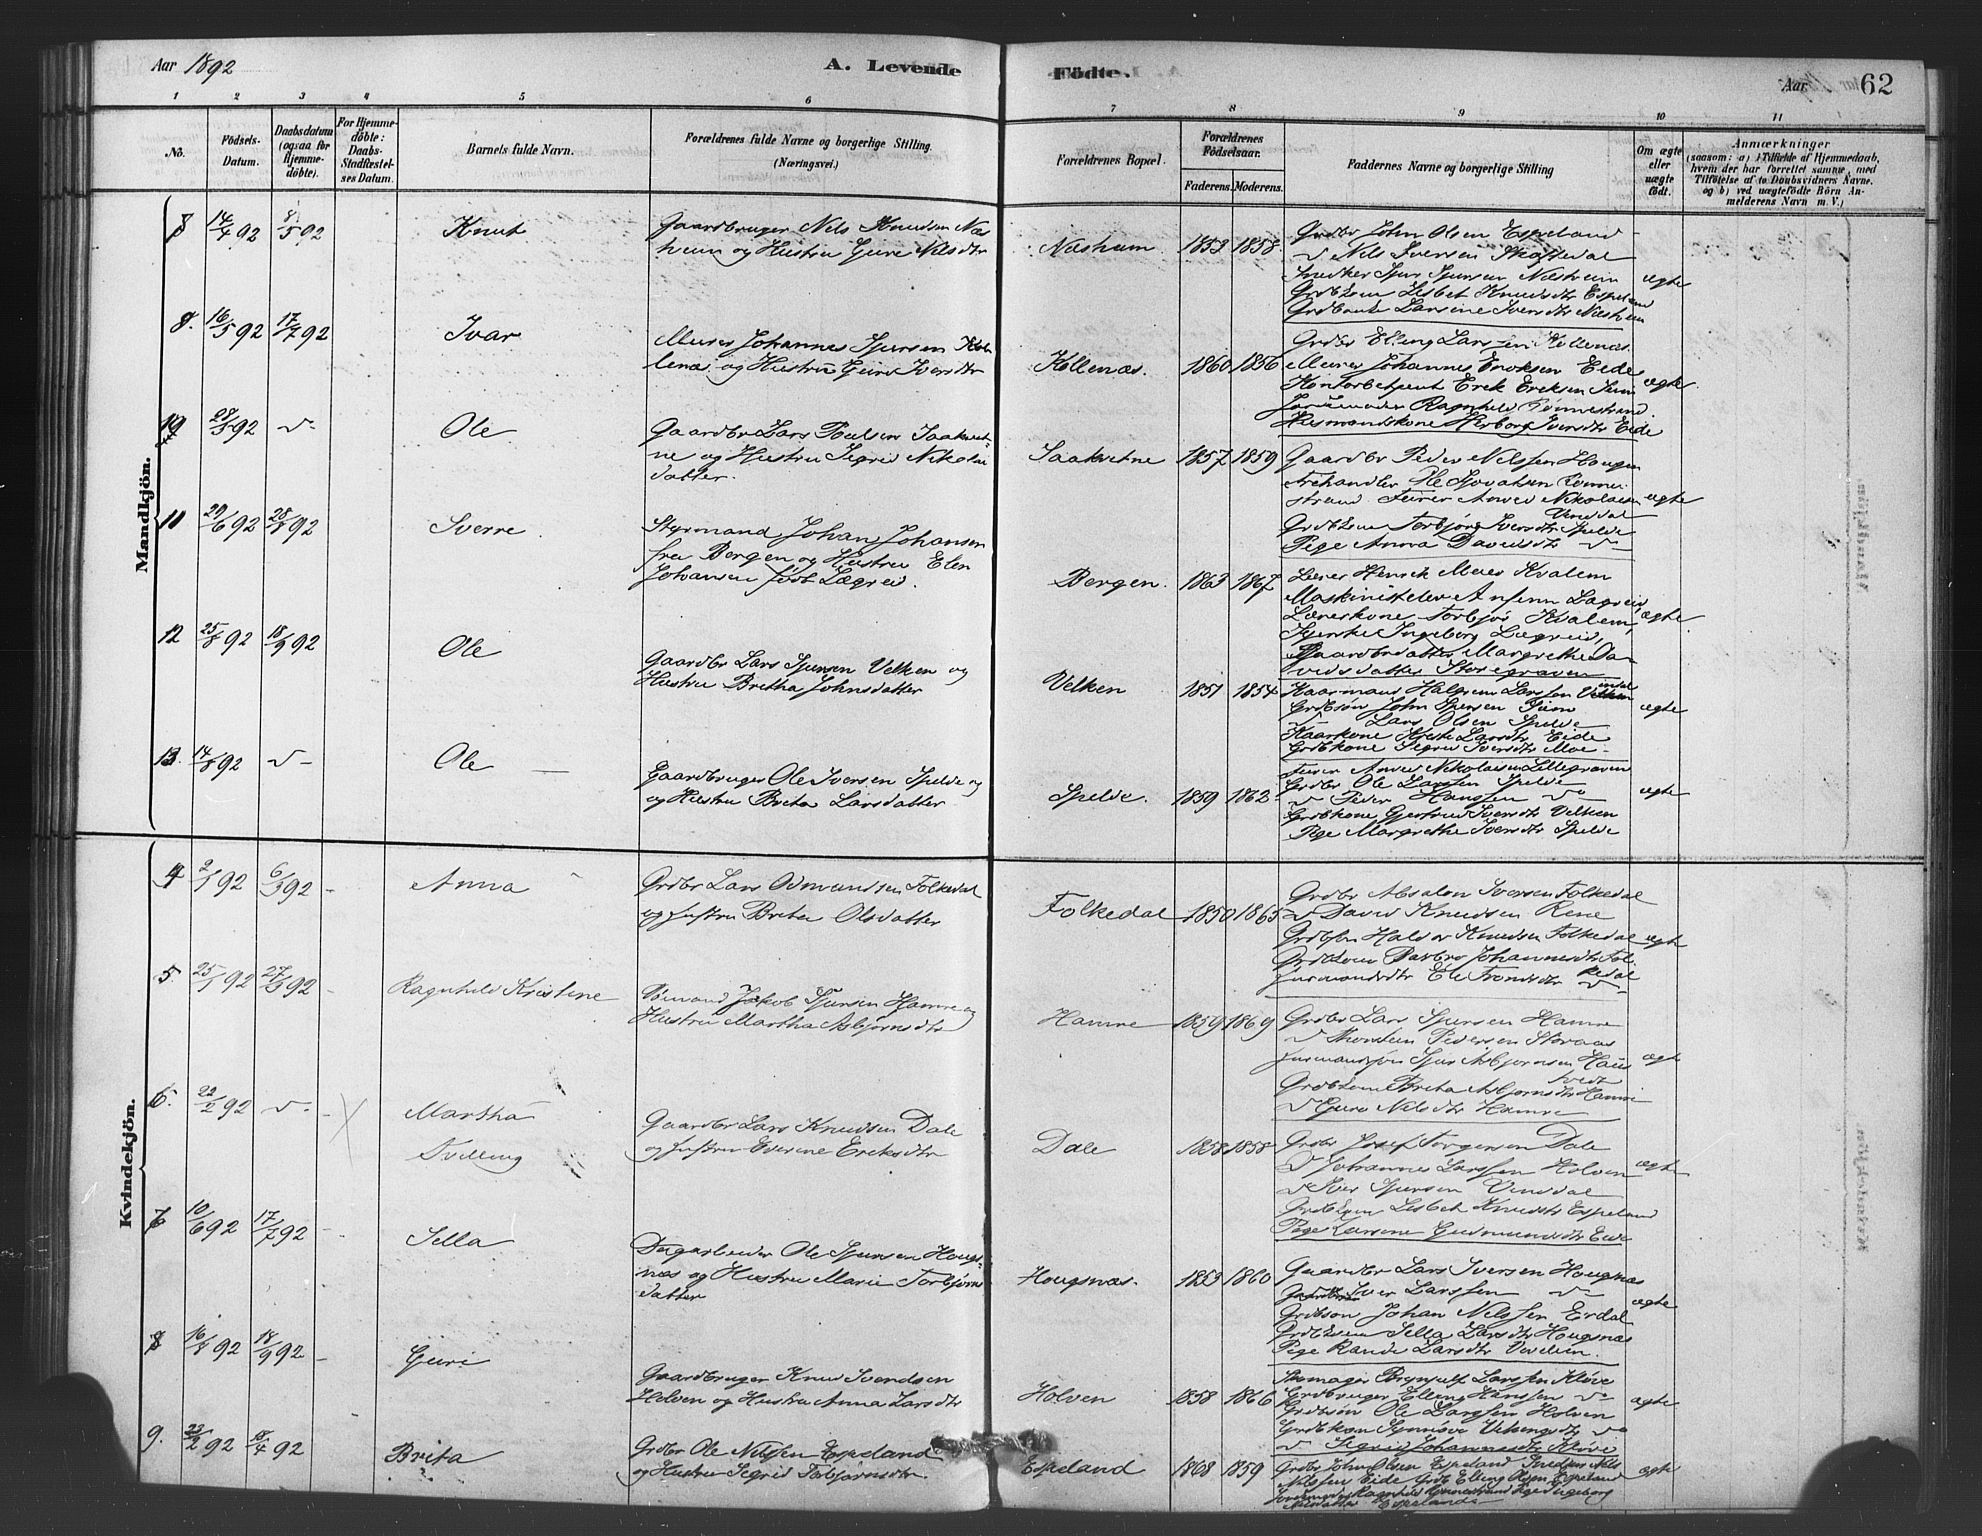 Aar 1892
A. Levende
Födte.
Aar
62
1 2 3 4 5 6 7 8 9 10 11
No.
Födsels-
Datum.
Daabsdatum
(ogsaa for
Hjemme-
döbte).
For Hjemme-
döbte:
Daabs-
Stadfæstel-
ses Datum.
Barnets fulde Navn.
Forældrenes fulde Navne og borgerlige Stilling.
(Næringsvei.)
Forældrenes Bopæl.
Forældrenes
Födselsaar.
Faderens. Moderens.
Faddernes Navne og borgerlige Stilling
Om ægte
eller
uægte
födt.
Anmærkninger
(saasom: a) i Tilfælde af Hjemmedaab,
hvem der har forrettet samme, med
Tilföielse af to Daabsvidners Navne,
og b) ved uægtefödte Börn An-
melderens Navn m. V.)
Mandkjön.
8 14/4 92 8/5 92 Knut
Gaardbruger Nils Knudsen Næs-
heim og Hustru Guri Nilsdtr
Næsheim 1853 1858
Grdbr John Olsen Espeland
v Nils Iversen Skaftedal
Snedker Sjur Sjursen Næsheim
Grdbkone Lisbet Knudsdtr Espeland
Larsine Iversdtr Næsheim
ægte
9. 16/5 92 17/7 92 Ivar
Murer Johannes Sjursen Kol-
lenæs og Hustru Guri Iversdtr
Kollenæs. 1860 1856
Grdbr Elling Larsen Kollenæs
Murer Johannes Eriksen Eide
Kontorbetjent Erik Eriksen
Jordemoder Ragnhild Rønnestrand
Husmandskone Herborg Iversdtr Eide
ægte
10 28/5 92 v Ole
Gaardbr Lars Poulsen Saakvit-
ne og Hustru Sigrid Nikolai
datter.
Saakvitne 1857 1859
Gaardbr Peder Nilssen Hougen
Ole Sjovatsen Rønne-
strand Anved Nikolaisen
Vinddal
Grdbkone Torbjør Iversdtr Spilde
Pige Anna Davidsdtr v
ægte
11 29/6 92 28/8 92 Sverre
Styrmand Johan Johansen
fra Bergen og Hustru Elen
Johansen født Lægreid.
Bergen. 1863 1867
Henrik Kvalem
Maskinistelev Ansjenn Lægreid,
Torbjør Kvalem,
Frøken Ingeborg Lægreid,
Gaardbrdatter Margrethe Da-
vidsdatter Storegraven
ægte
12 25/8 92 18/9 92 Ole
Gaardbr Lars Sjursen Velken og
Hustru Britha Johnsdatter
Velken 1851 1854
Kaarmand Larsen
Grdbsøn John Sjursen
v Lars Olsen Spilde
Kaarkone Larsdtr Eide
Grdbkone Sigrid Iversdtr Moe
ægte
13. 14/8 92 v Ole
Gaardbruger Ole Iversen Spilde og
og Hustru Brita Larsdatter
Spilde. 1859 1862
Anved Nikolaisen Lillegraven
Grdbr Ole Larssen Spilde
v Peder Hanssen v
Grdbkone Gjertrud Iversdtr Velken
Pige Margrethe Iversdtr Spilde
ægte
Kvindekjön.
4 2/1 92 6/3 92 Anna
Grdbr Lars Odmundsen Folkedal
og Hustru Brita Olsdatter
Folkedal 1850 1865
Grdbr Absalon Iversen Folkedal
v David Knudsen Rene
Grdbsøn Haldor Knudsen Folkedal
Grdbkone Barbro Johannesdtr Fol-
kedal
Trondsdtr v
ægte
5. 25/1 92 27/3 92 Ragnhild Kristine
Sømand Jakob Sjursen Hamre og
Hustru Martha Asbjørnsdtr
Hamre 1859 1869
Grdbr Lars Sjursen Hamre
v Thorstein Pedersen Storaas
Husmandssøn Sjur Asbjørnsen Haus
tvedt
Grdbkone Brita Asbjørnsdtr Hamre
v Guro Nilsdtr Hamre
ægte
6. 22/2 92 v Martha
Tvilling
Gaardbr Lars Knudsen Dale
og Hustru Everine Eriksdtr
Dale 1858 1858
Grdbr Josef Torgersen Dale
v Johannes Larssen Holven
v Iver Sjursen Vinddal
Grdbkone Lisbet Knudsdtr Espeland
Pige Gudmundsdtr Eide
ægte
7 10/6 92 17/7 92 Sella
Dagarbeider Ole Sjursen Hougs-
næs og Hustru Marie Torbjørns
datter
Hougsnæs. 1853 1860
Gaardbr Lars Iversen Hougsnæs
Iver Larssen v
Grdbsøn Johan Nilssen Erdal
Grdbkone Sella Larsdtr Hougsnæs
Pige Larsdtr
ægte
8 16/8 92 18/9 92 Guri
Gaardbruger Knud Svendsen
Holven og Hustru Anna Larsdtr
Holven 1858 1866
Skomager Brynjulf Larssen Kløve
Grdbruger Elling Hanssen v
Grdbsøn Ole Larssen Holven
Grdbkone Synnøve v
v Sigrid Johannesdtr Kløve
ægte
9. 22/2 92 18/4 92 Brita
Grdbr Ole Nilssen Espeland
og Hustru Sigrid Torbjørnsdtr.
Espeland 1868 1859
Grdbr John Olsen Espeland Snedker Nils
Nilssen Eide Elling Olsen Espeland
Jordemoder Ragnhild Rønnestrand Pige Ingeborg
Nilsdatter Espeland
ægte